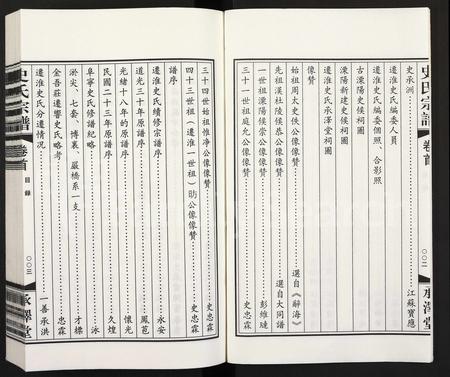 史承洲……江蘇寶應
遷淮史氏編委人員
遷淮史氏編委個照、合影照
古溧陽史侯祠圖
溧陽新建史侯祠圖
遷淮史氏承澤堂祠圖
像贊
始祖周太史佚公像像贊……選自《辭海》
先祖漢杜陵侯恭公像像贊……選自大同譜
一世祖溧陽侯崇公像像贊……彭維璉
三十一世祖庭允公像像贊……史忠霖
史氏宗譜
卷首
〇〇二
承澤堂
三十四世始祖惟净公像像贊……史忠霖
四十三世祖（遷淮一世祖）昉公像像贊……史忠霖
譜序
遷淮史氏續修宗譜序……永安
道光三十年原譜序……鳳苞
光緒十八年原譜序……懷光
民國二十三年原譜序……久煌
阜寧史氏修譜紀略……泳
淤尖、七套、博裏、嚴橋系一支……才標
金吾莊遷響史氏略考……忠霖
遷淮史氏分遷情况……一善承洪
史氏宗譜
卷首
目錄
〇〇三
承澤堂